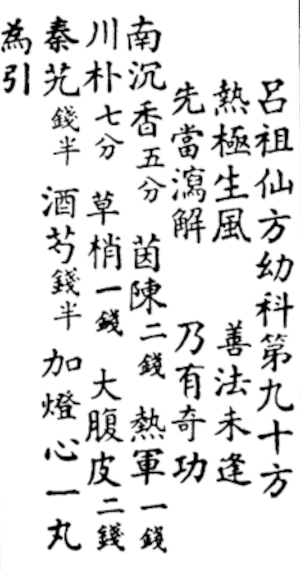 呂祖仙方幼科第九十方
熱極生風　善法未逢
先當瀉解　乃有奇功
南沉香五分　茵陳二錢　熱軍一錢
川朴七分　草梢一錢　大腹皮二錢
秦艽錢半　酒芍錢半　加燈心一丸
為引